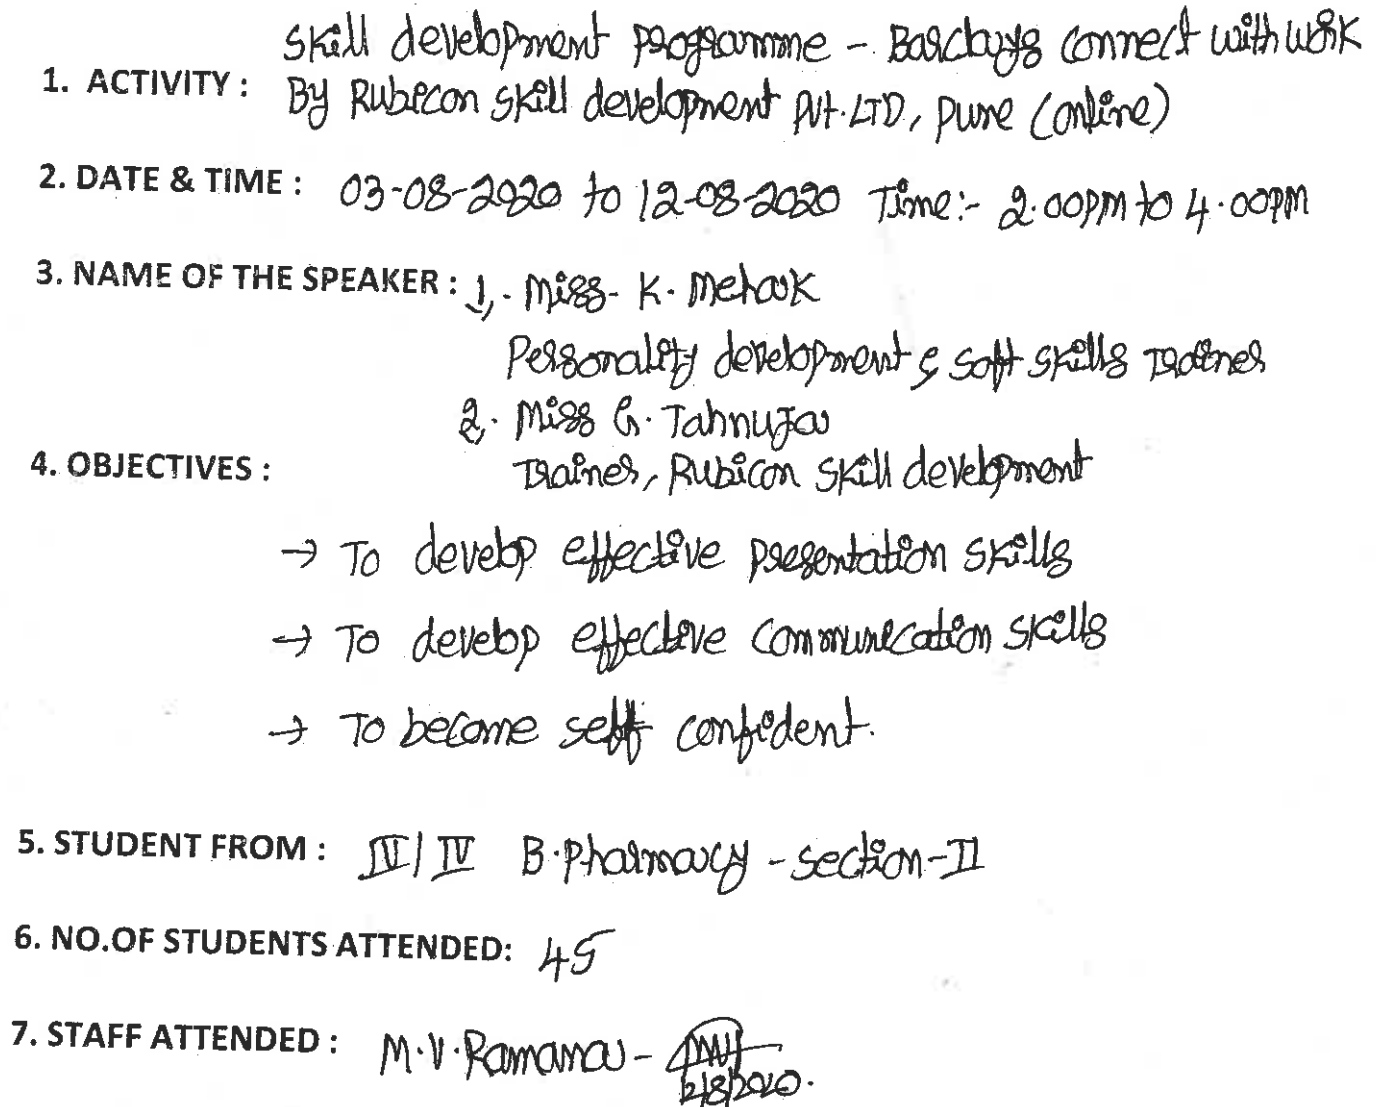 Skill development programme - Barclays connect with work
1. ACTIVITY : By Rubicon skill development Pvt. LTD, pune (online)
2. DATE & TIME : 03-08-2020 to 12-08-2020 Time:- 2.00pm to 4.00pm
3. NAME OF THE SPEAKER : 1,. Miss. K. Mehak
Personality development & soft skills Trainer
2. Miss G. Tahnuja
4. OBJECTIVES : Trainer, Rubicon skill development
→ To develop effective presentation skills
→ To develop effective communication skills
→ To become self confident.
5. STUDENT FROM : IV/IV B.Pharmacy - section-II
6. NO.OF STUDENTS ATTENDED: 45
7. STAFF ATTENDED : M.V.Ramana -
12/8/2020.